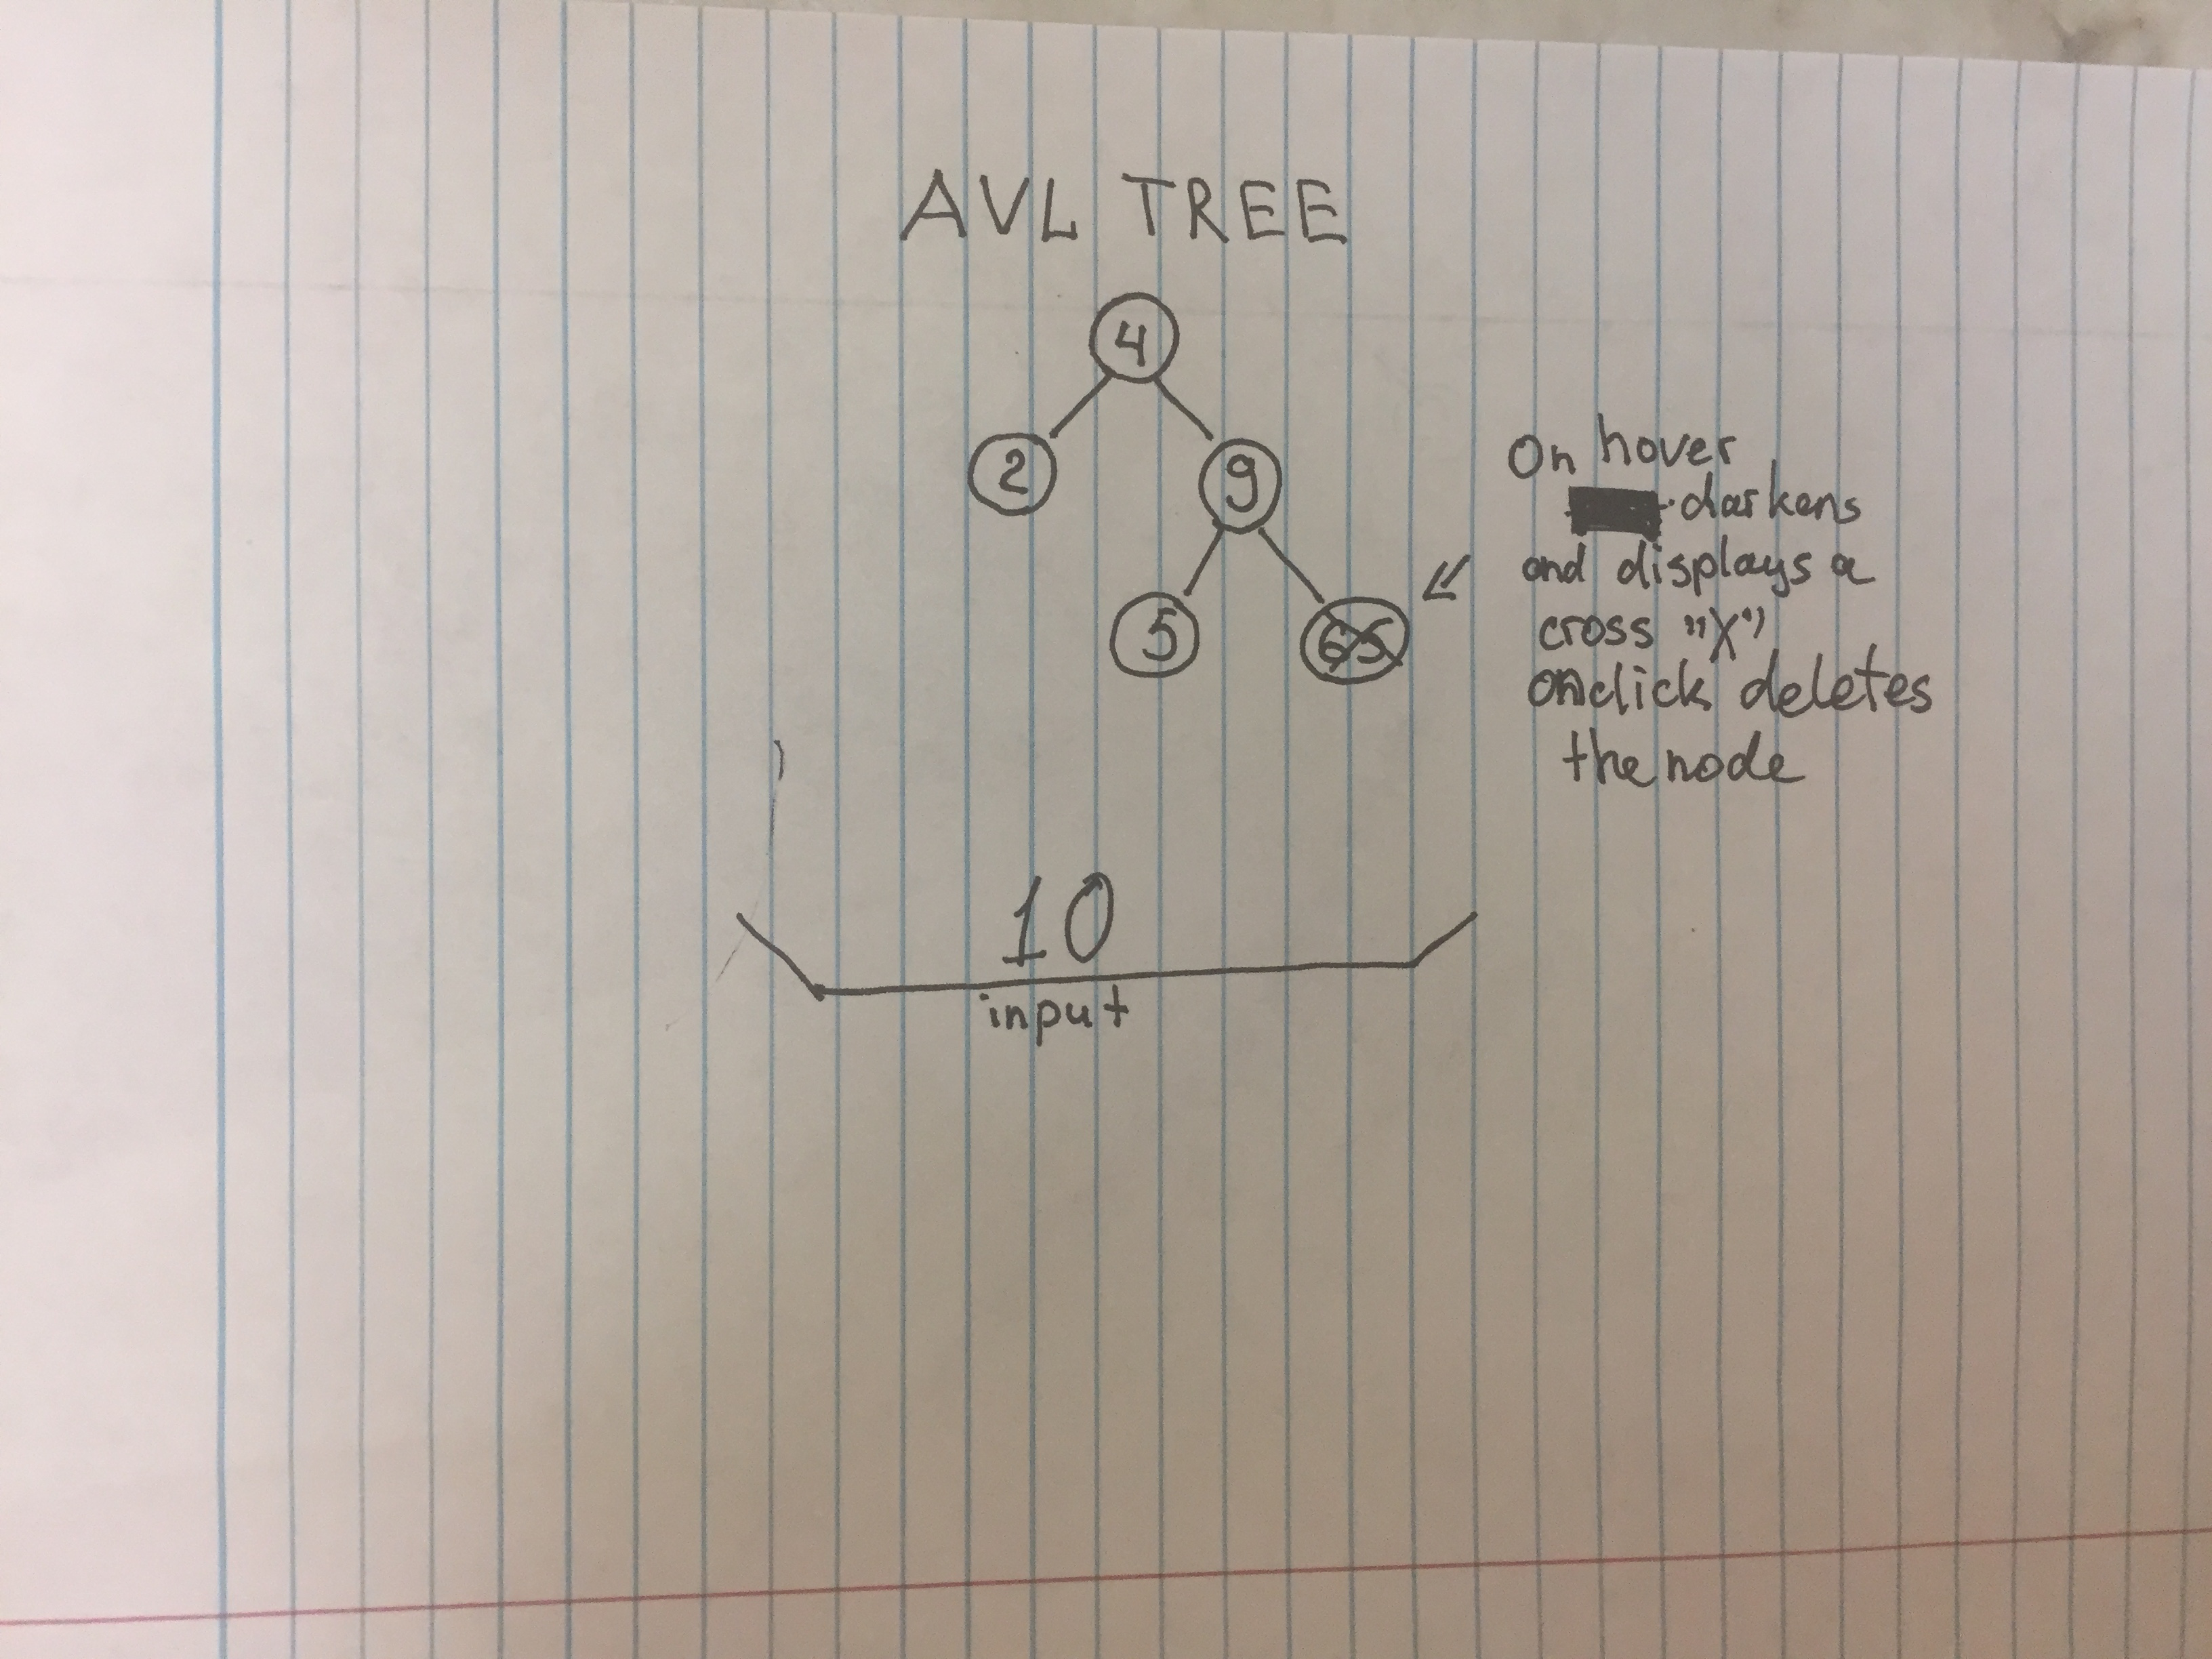 AVL TREE
4
2 9
5 65
On hover
darkens
and displays a
cross "X"
onclick deletes
the node
10
input